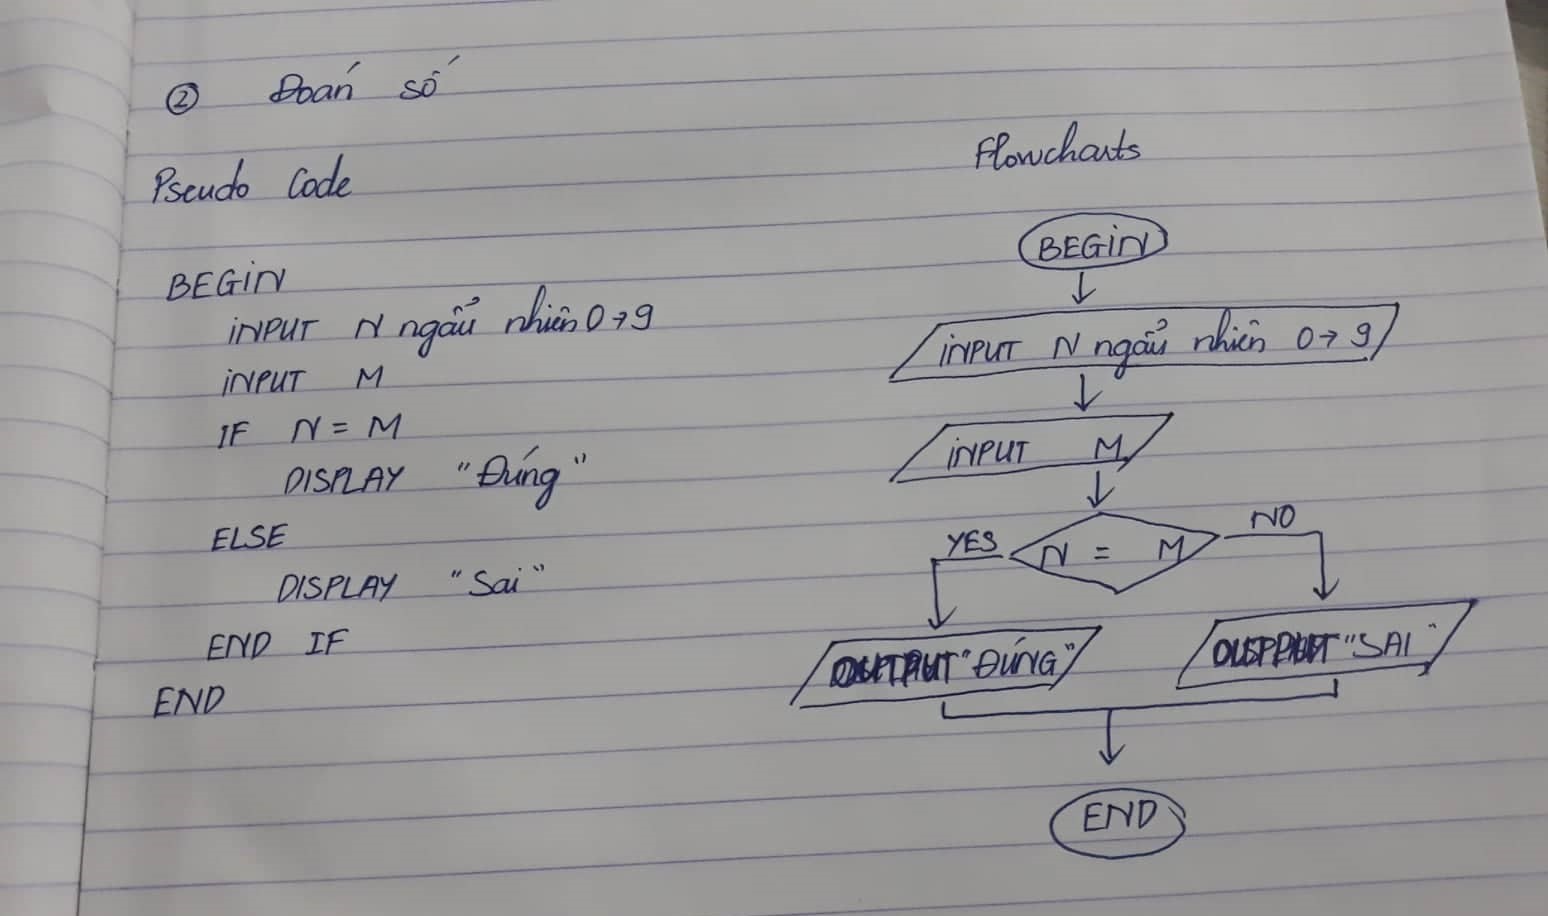 ② Đoán số
Pseudo Code
BEGIN
INPUT N ngẩu nhiên 0→9
INPUT M
IF N = M
DISPLAY "Đúng"
ELSE
DISPLAY "Sai"
END IF
END
Flowcharts
BEGIN
INPUT N ngẩu nhiên 0→9
INPUT M
YES
N = M
NO
OUTPUT "ĐÚNG"
OUTPUT "SAI"
END